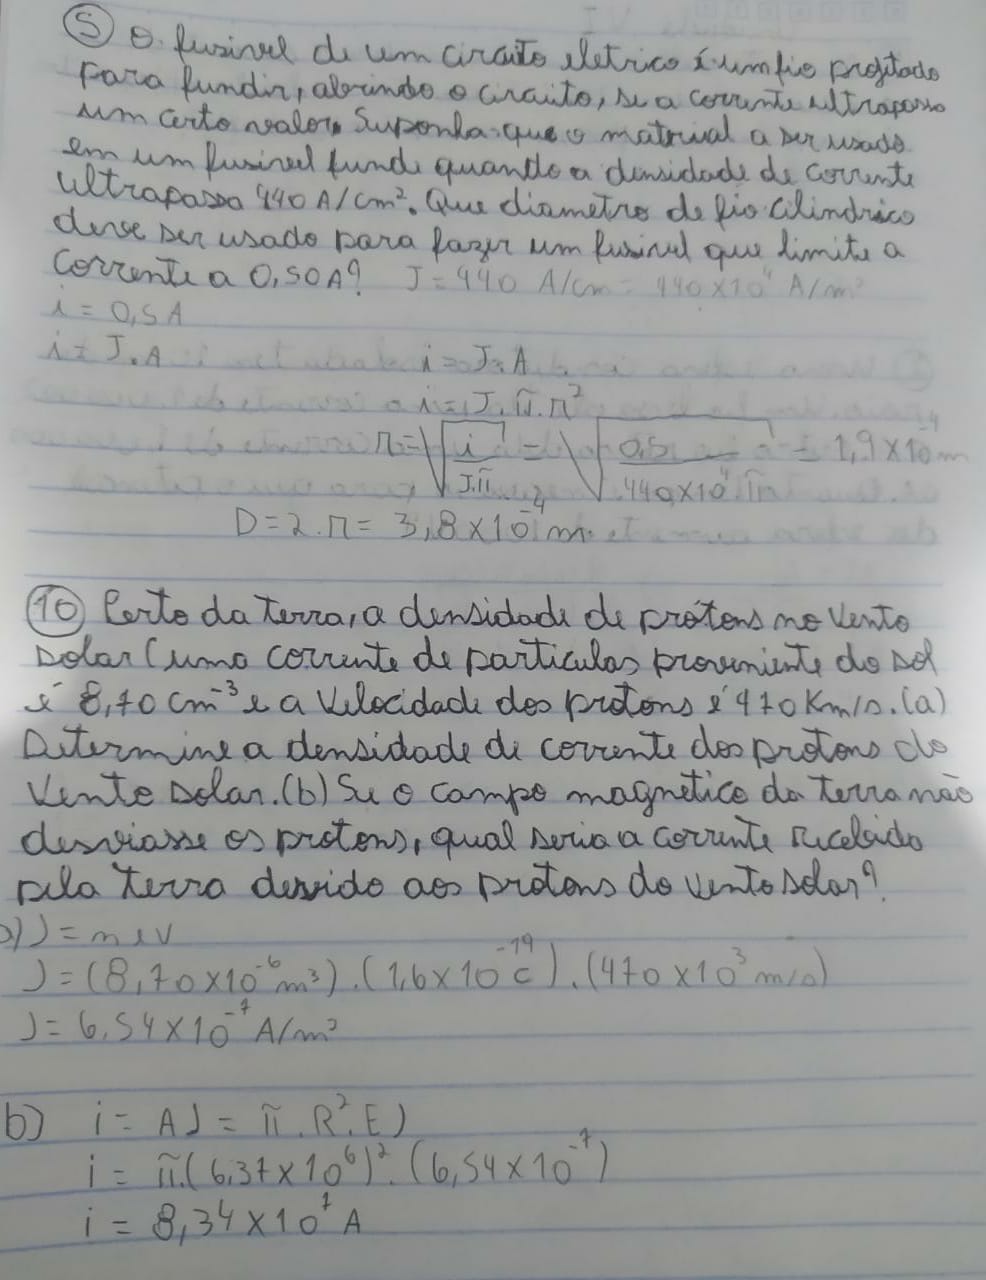 ⑤ O fusivel de um circuito eletrico é um fio projetado
para fundir, abrindo o circuito, se a corrente ultrapassa
um certo valor. Suponha que o material a ser usado
em um fusivel funde quando a densidade de corrente
ultrapassa 440 A/cm². Que diametro de fio cilindrico
deve ser usado para fazer um fusivel que limite a
corrente a 0,50A? J = 440 A/cm = 440x10⁴ A/m²
i = 0,5A
i = J.A i = J.A
i = J.π.r²
r = √(i/J.π) = √(0,5/440x10⁴π) = 1,9x10⁻⁴m
D = 2.r = 3,8x10⁻⁴m
⑩ Perto da terra, a densidade de prótons no vento
solar (uma corrente de particulas proveniente do sol
é 8,70 cm⁻³ e a velocidade dos protons é 470 Km/s. (a)
Determine a densidade de corrente dos protons do
vento solar. (b) Se o campo magnetico da terra não
desviasse os protons, qual seria a corrente recebida
pela terra devido aos protons do vento solar?
a) J = nev
J = (8,70x10⁻⁶m³).(1,6x10⁻¹⁹c).(470x10³m/s)
J = 6,54x10⁻⁷A/m²
b) i = AJ = π.R².EJ
i = π.(6,37x10⁶)².(6,54x10⁻⁷)
i = 8,34x10⁷A